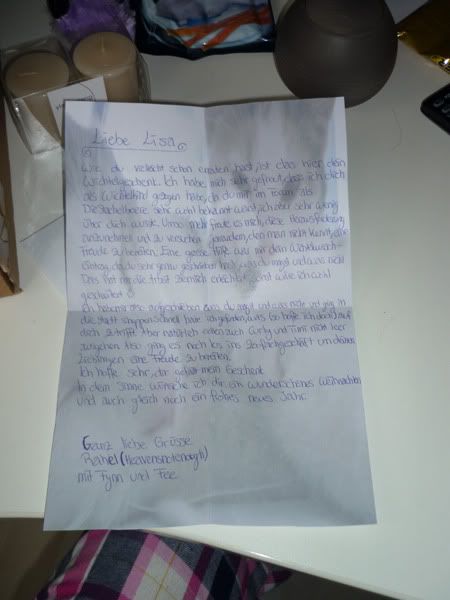 Liebe Lisa
Wie du vielleicht schon erraten hast, ist das hier dein
Wichtelgeschenk. Ich habe mich sehr gefreut, dass ich dich
als Wichtelkind gezogen habe, da du mir im Forum als
sehr wohl bekannt warst, ich aber sehr wenig
über dich wusste. Umso mehr freute es mich, diese Herausforderung
anzunehmen und zu versuchen jemandem, den man nicht kennt, eine
Freude zu bereiten. Eine grosse Hilfe war mir dein
Eintrag, da du sehr genau geschrieben hast, was du magst und was nicht.
Dies hat mir die Arbeit ziemlich erleichtert, sonst wäre ich wohl
gescheitert
Ich habe mir also aufgeschrieben was du magst und was nicht und ging in
die Stadt shoppen. Schnell habe ich gefunden, was (so hoffe ich doch) auf
dich zutrifft. Aber natürlich sollen auch Curly und Timi nicht leer
ausgehen. Also ging es noch los ins Tierfachgeschäft um deinen
Lieblingen eine Freude zu bereiten.
Ich hoffe sehr, dir gefällt mein Geschenk.
In dem Sinne wünsche ich dir ein wunderschönes Weihnachten
und auch gleich noch ein frohes neues Jahr.
Ganz liebe Grüsse
Rahel (Heavensnotenough)
mit Fynn und Fee